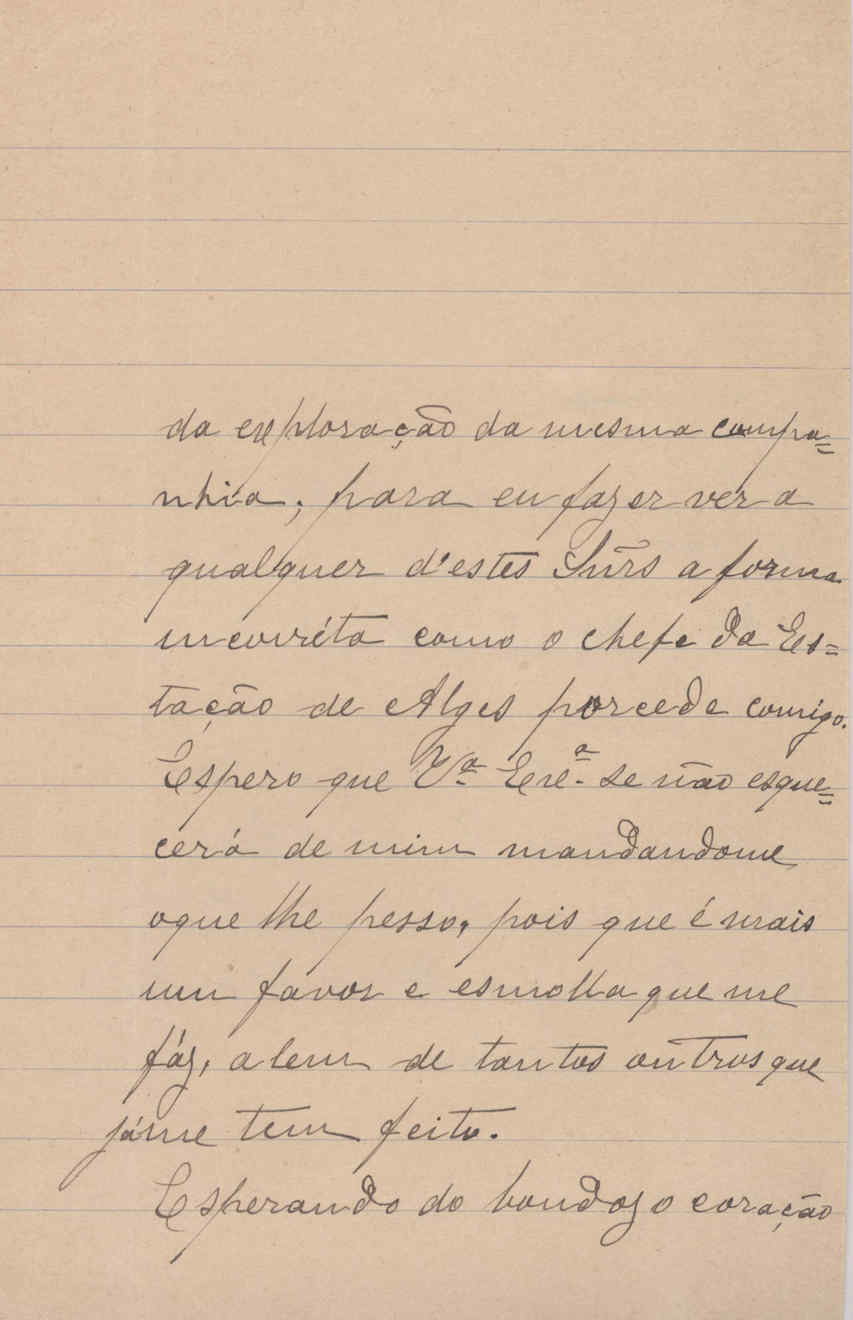 da exploração da mesma compa=
nhia, para eu fazer ver a
qualquer d'estes Snr̃s a forma
incorréta como o chefe da Es=
tação de Alges porcede comigo.
Espero que Vª Exeª. se não esque=
cerá de mim mandandome
oque lhe pesso, pois que é mais
um favor e esmolla que me
fáz, alem de tantos outros que
jáme tem feito.
Esperando do bondozo coração